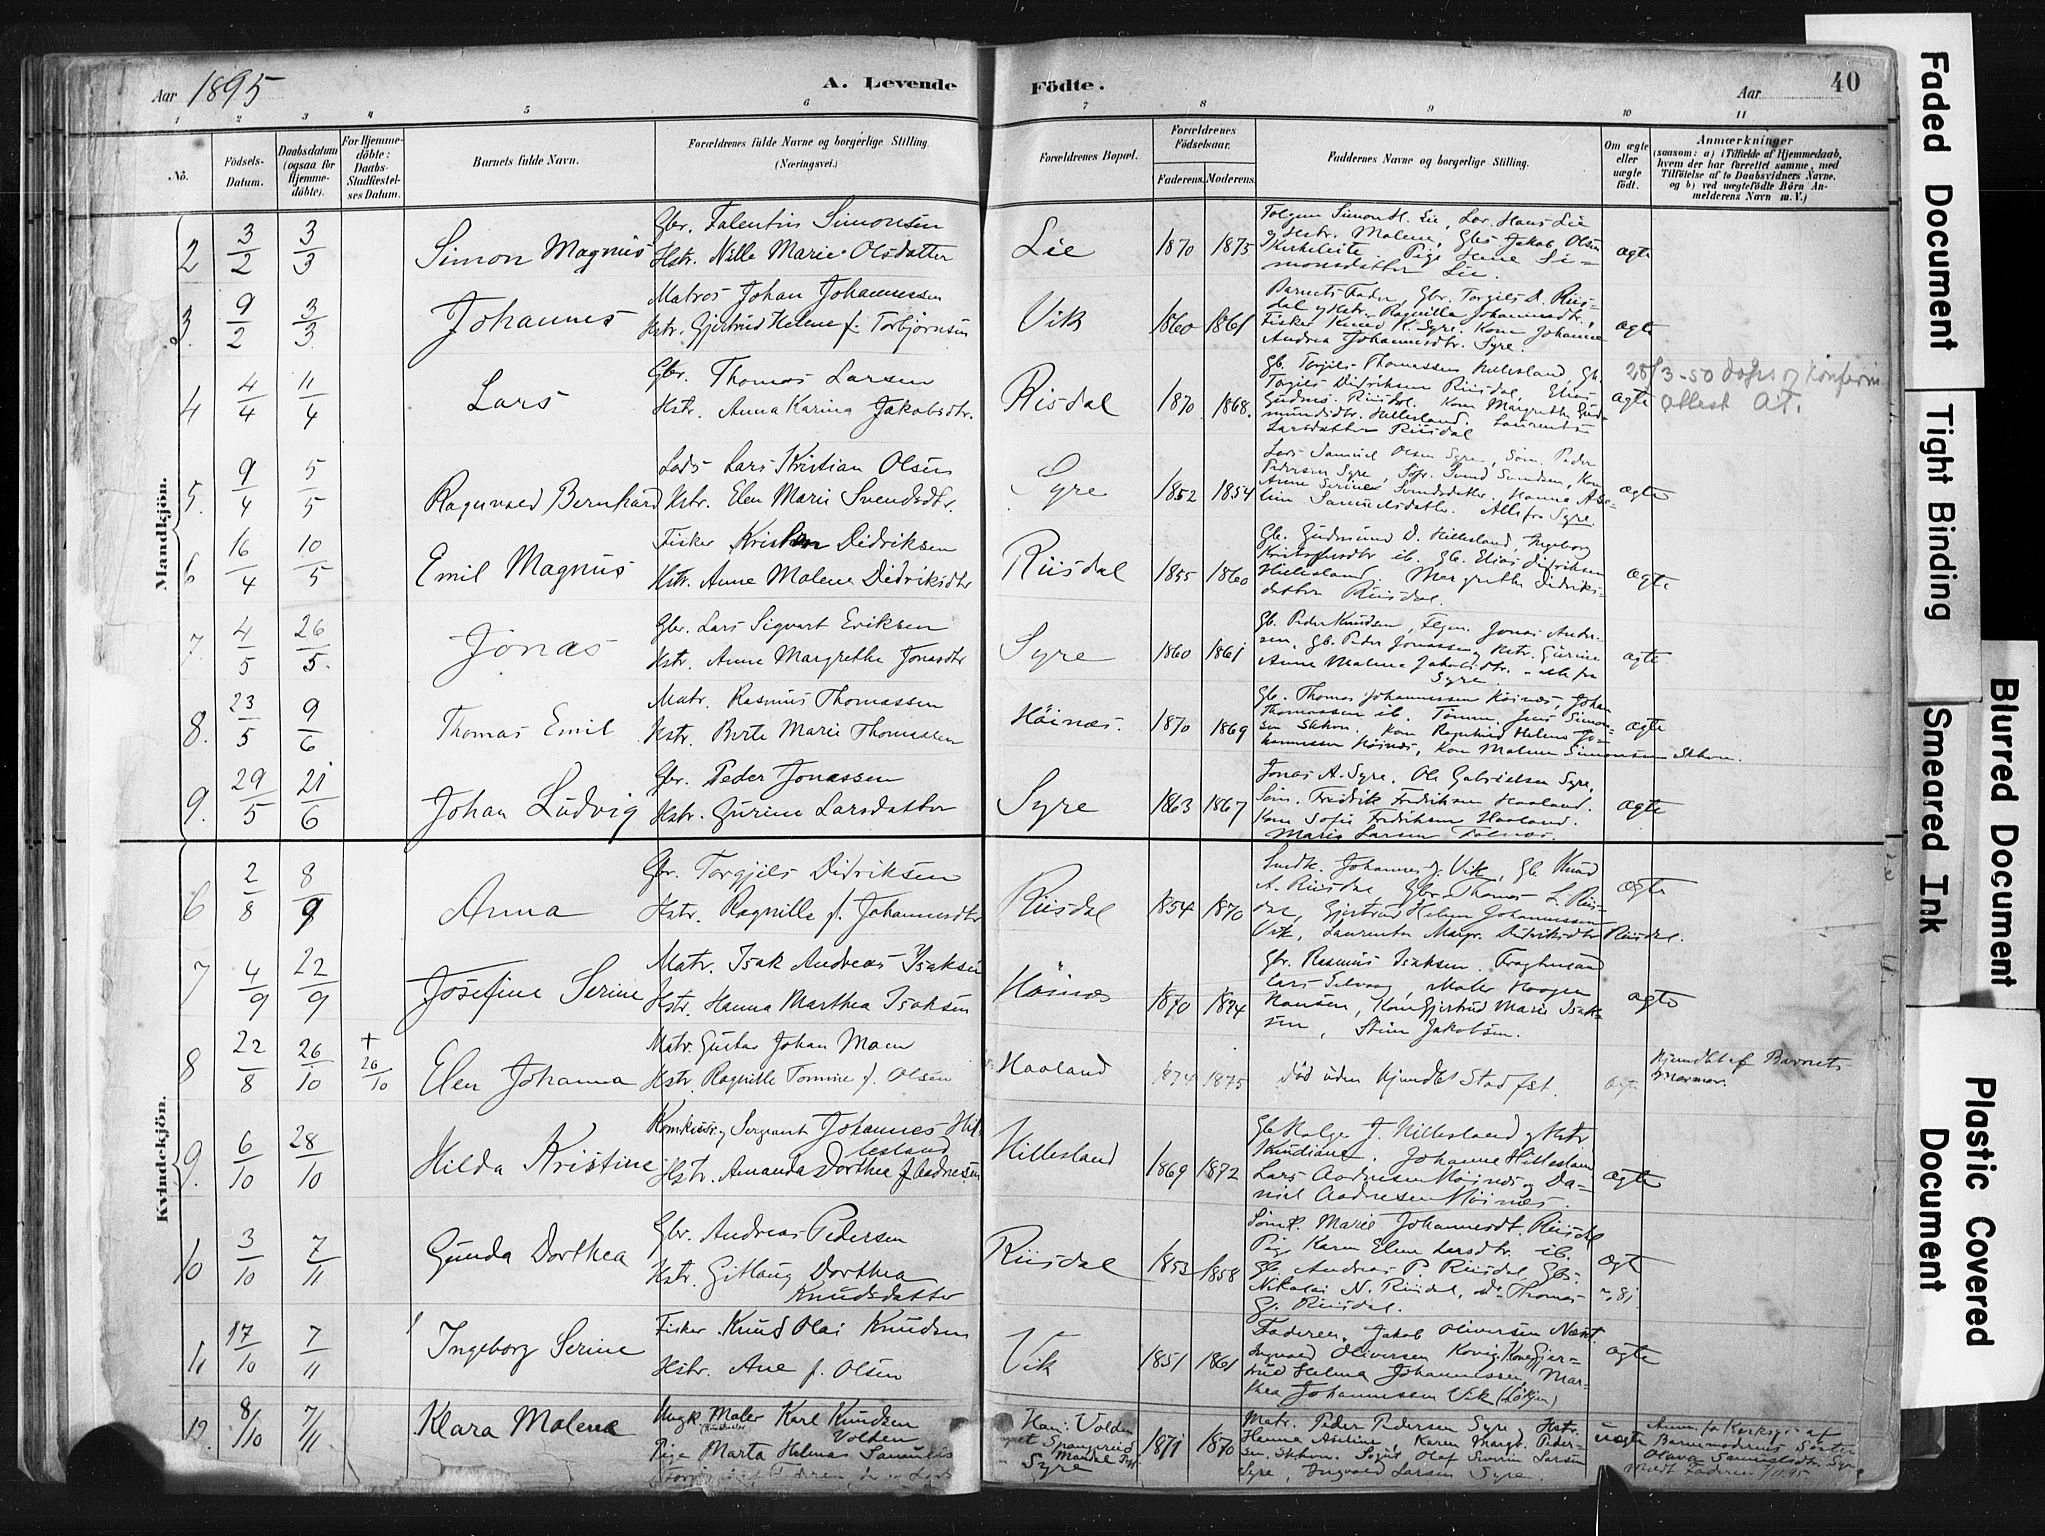 Aar 1895
A. Levende
Födte.
Aar
40
1 2 3 4 5 6 7 8 9 10 11
No.
Födsels-
Datum.
Daabsdatum
(ogsaa for
Hjemme-
döbte).
For Hjemme-
döbte:
Daabs-
Stadfæstel-
ses Datum.
Barnets fulde Navn.
Forældrenes fulde Navne og borgerlige Stilling.
(Næringsvei.)
Forældrenes Bopæl.
Forældrenes
Födselsaar.
Faderens.
Moderens.
Faddernes Navne og borgerlige Stilling.
Om ægte
eller
uægte
födt.
Anmærkninger
(saasom: a) i Tilfælde af Hjemmedaab,
hvem der har forrettet samme, med
Tilföielse af to Daabsvidners Navne,
og b) ved uægtefödte Börn An-
melderens Navn m. V.)
Mandkjön.
2 3/2 3/3 Simon Magnus
Gbr. Falentin Simonsen
Hstr. Nille Marie Olsdatter
Lie 1870 1875
Hstr. Malene, Gbr. Jakob Olsen
Kirkeleite. Pige Si-
monsdatter Lie.
ægte
3. 9/2 3/3 Johannes
Matros Johan Johannessen
Hstr. Gjertrud Helene f. Torbjörnsen
Vik 1860 1861
Barnets Fader, Gbr. Torgils D. Riis-
dal og Hstr. Ragnilla Johannesdtr.,
Fisker Knud K. Syre. Kone Johanne
Andrea Johannesdtr. Syre.
ægte
4 4/4 11/4 Lars
Gbr. Thomas Larsen
Hstr. Anna Karina Jakobsdtr.
Riisdal 1870 1868.
Gb. Torgils Thomassen Hillesland, Gb.
Torgils Didriksen Riisdal, Elias
Gudmunds. Riisdal. Kone Margrethe Gud-
mundsdtr. Hillesland. Laurentse
Larsdatter Riisdal
ægte
28/3-50 daaps og konfirm
attest AT.
5. 9/4 5/5 Ragnvald Bernhard
Lods Lars Kristian Olsen
Hstr. Elen Marie Svendsdtr.
Syre 1852 1854
Lods Samuel Olsen Syre, Søm. Peder
Pedersen Syre, Svend Svendsen, Kone
Anne Serine Svendsdatter. Hanna Ase-
line Samuelsdatter. Alle fra Syre.
ægte
6 16/4 10/5 Emil Magnus
Fisker Didriksen
Hstr. Anne Malene Didriksdtr
Riisdal 1855 1860
Gb. Gudmund D. Hillesland, Ingeborg
Kristoffersdtr ib. Gb. Elias Didriksen
Hillesland. Margrethe Didriks-
datter Riisdal.
ægte
7. 4/5 26/5. Jonas
Gbr. Lars Sigvart Eriksen
Hstr. Anne Margrethe Jonasdtr
Syre 1860 1861
Gb. Peder Knudsen, Jonas Ander-
sen, Gb. Peder Jonassen og Hstr. Gurine
Anne Malena Jakobsdtr. alle fra
Syre
ægte
8. 23/5 9/6 Thomas Emil
Matr. Rasmus Thomassen
Hstr. Berte Marie Thomassen
Höinæs. 1870 1869
Gb. Thomas Johannessen Höinæs, Johan
Thomassen ib. Tömm. Jens Simon-
sen Skhvn. Kone Ragnhild Helene Jo-
hannessen Höinæs, Kone Malene Simonsen Skhvn.
ægte
9. 29/5 21/6 Johan Ludvig
Gbr. Peder Jonassen
Hstr. Gurine Larsdatter
Syre 1863 1867
Jonas A. Syre, Ole Gabrielsen Syre,
Söm. Fredrik Fredriksen Haaland.
Kone Sofie Fredriksen Haaland.
Marie Larsen Falnæs.
ægte
Kvindekjön.
6 2/8 8/9 Anna
Gbr. Torgjils Didriksen
Hstr. Ragnille f. Johannesdtr
Riisdal 1854 1870
Johannes J. Vik, Gb. Knud
A. Riisdal, Gbr. Thomas L. Riis-
dal, Gjertrud Helene Johannessen
Vik, Laurentse Margr. Didriksdtr Riisdal.
ægte
7 4/9 22/9 Josefine Serine
Matr. Isak Andreas Isaksen
Hstr. Hanna Marthea Isaksen
Höinæs 1870 1874
Gbr. Rasmus Isaksen.
Lars
Hansen, Kone Gjertrud Marie Isak-
sen, Stine Jakobsen.
ægte
8 22/8 26/10 + 26/10 Elen Johanna
Matr. Gustav Johan Moen
Hstr. Ragnille Tomine f. Olsen
Haaland 1874 1875
Död uden kjendt Stadfst.
ægt.
Hjemdbt af Barnets
Mormor.
9. 6/10 28/10 Hilda Kristine
og Sergeant Johannes Hil-
lesland
Hstr. Amanda Dorthea f. Andresen
Hillesland 1869 1872
Gb Holger J. Hillesland og Hstr
Johanne Hillesland
Lars Andresen Höinæs og Da-
niel Andresen Höinæs.
ægte
10 3/10 7/11 Gunda Dorthea
Gbr. Andreas Pedersen
Hstr. Gitlaug Dorthea
Knudsdatter
Riisdal 1852 1858
Marie Johannesdt. Riisdal
Pige Karen Elene Larsdtr. ib.
Gb. Andreas P. Riisdal, Gbr.
Nikolai N. Riisdal, Thomas
G. Riisdal.
ægt
11 17/10 7/11 Ingeborg Serine
Fisker Knud Olai Knudsen
Hstr. Ane f. Olsen
Vik 1851 1861
Faderen, Jakob Oliversen
Ingvald Oliversen Kone Gjer-
trud Helena Johannessen, Mar-
thea Johannessen Vik
ægte
12. 8/10 7/11 Klara Malene
Ungk. Maler Karl Knudsen
Volden
Pige Marta Helene Samuels
Volden
Spangereid
Mandal
Syre
1871 1870
Matr. Peder Pedersen Syre, Hstr.
Hanna Aseline, Karen Margt. Peder-
sen Skhvn. Olaf Severin Larsen
Syre, Ingvald Larsen Syre.
uægte
af
Barnemoderens Söster
Olava Samuelsdtr. Syre
Faderen 7/11 95
Faded Document
Tight Binding
Blurred Document
Smeared Ink
Plastic Covered
Document